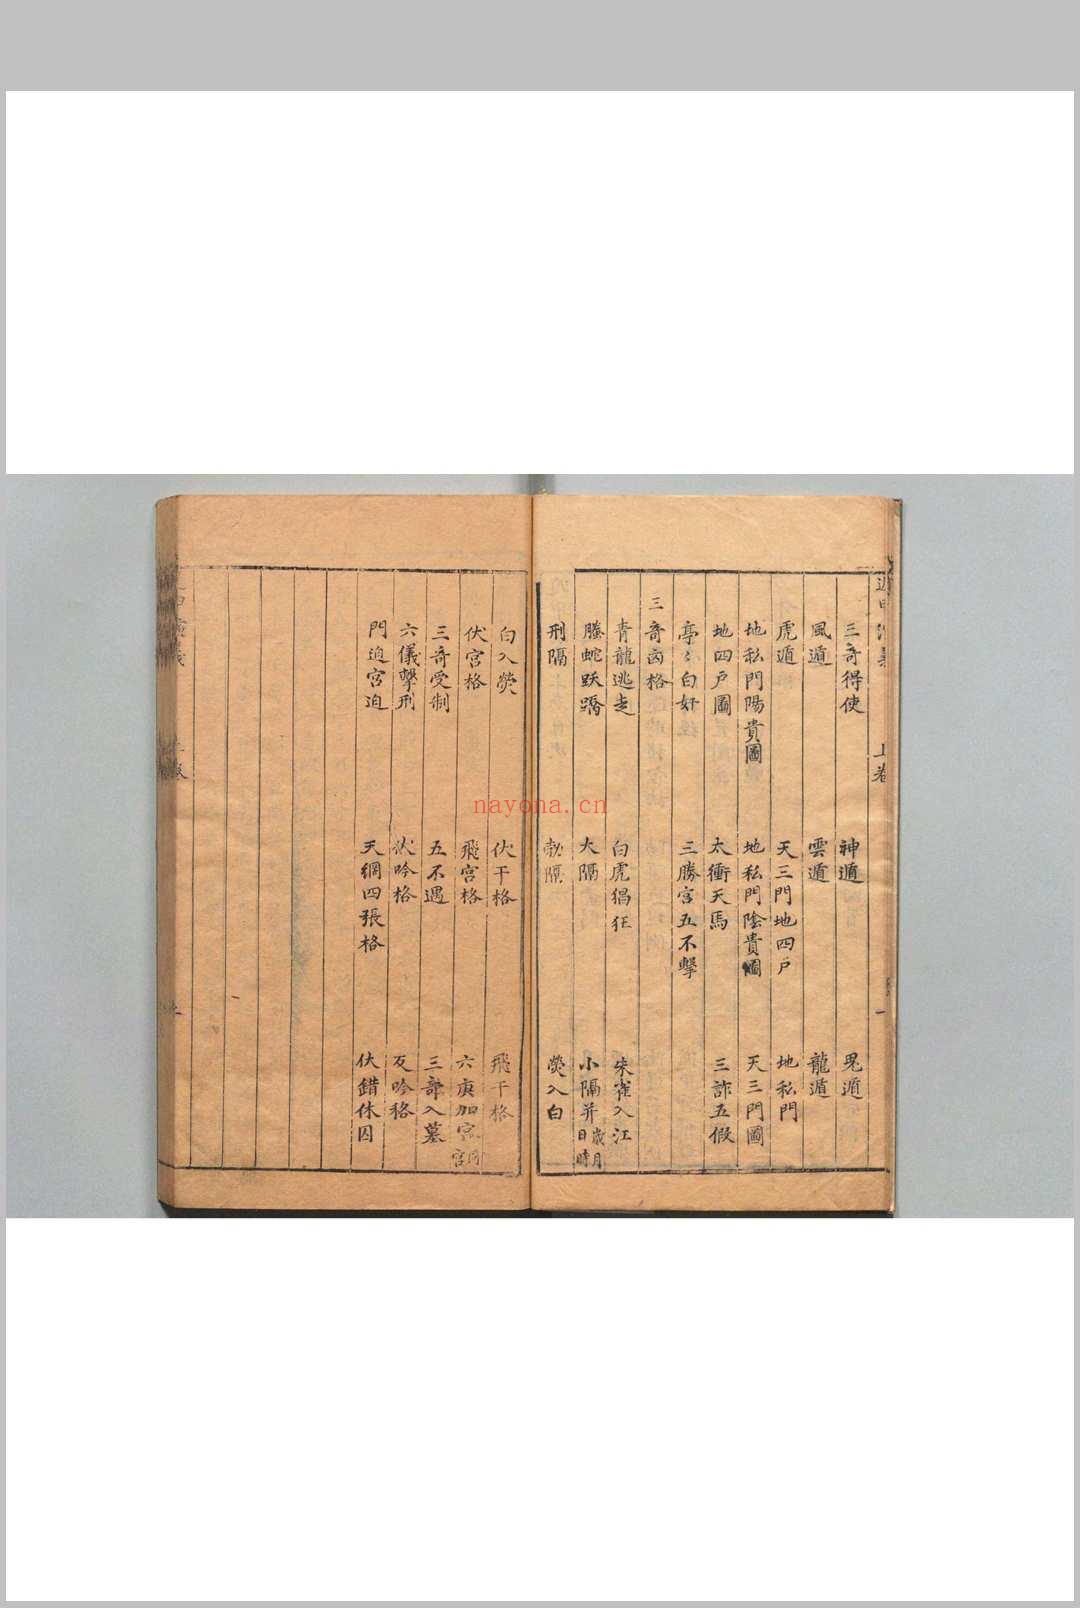 三奇得使 神遁 鬼遁
風遁 雲遁 龍遁
虎遁 天三門地四户 地私門
地私門陽貴圖 地私門陰貴圖 天三門圖
地四户圖 太衝天馬 三詐五假
亭々白奸 三勝宮五不擊
三奇凶格
青龍逃走 白虎猖狂 朱雀入江
螣蛇跃蹻 大隔 小隔并歲月日時
刑隔 勃隔 熒入白
白入熒 伏干格 飛干格
伏宫格 飛宫格 六庚加宫
三奇受制 五不遇 三奇入墓
六儀擊刑 伏吟格 反吟格
門迫宫迫 天網四張格 伏錯休囚
上卷
nayona.cn